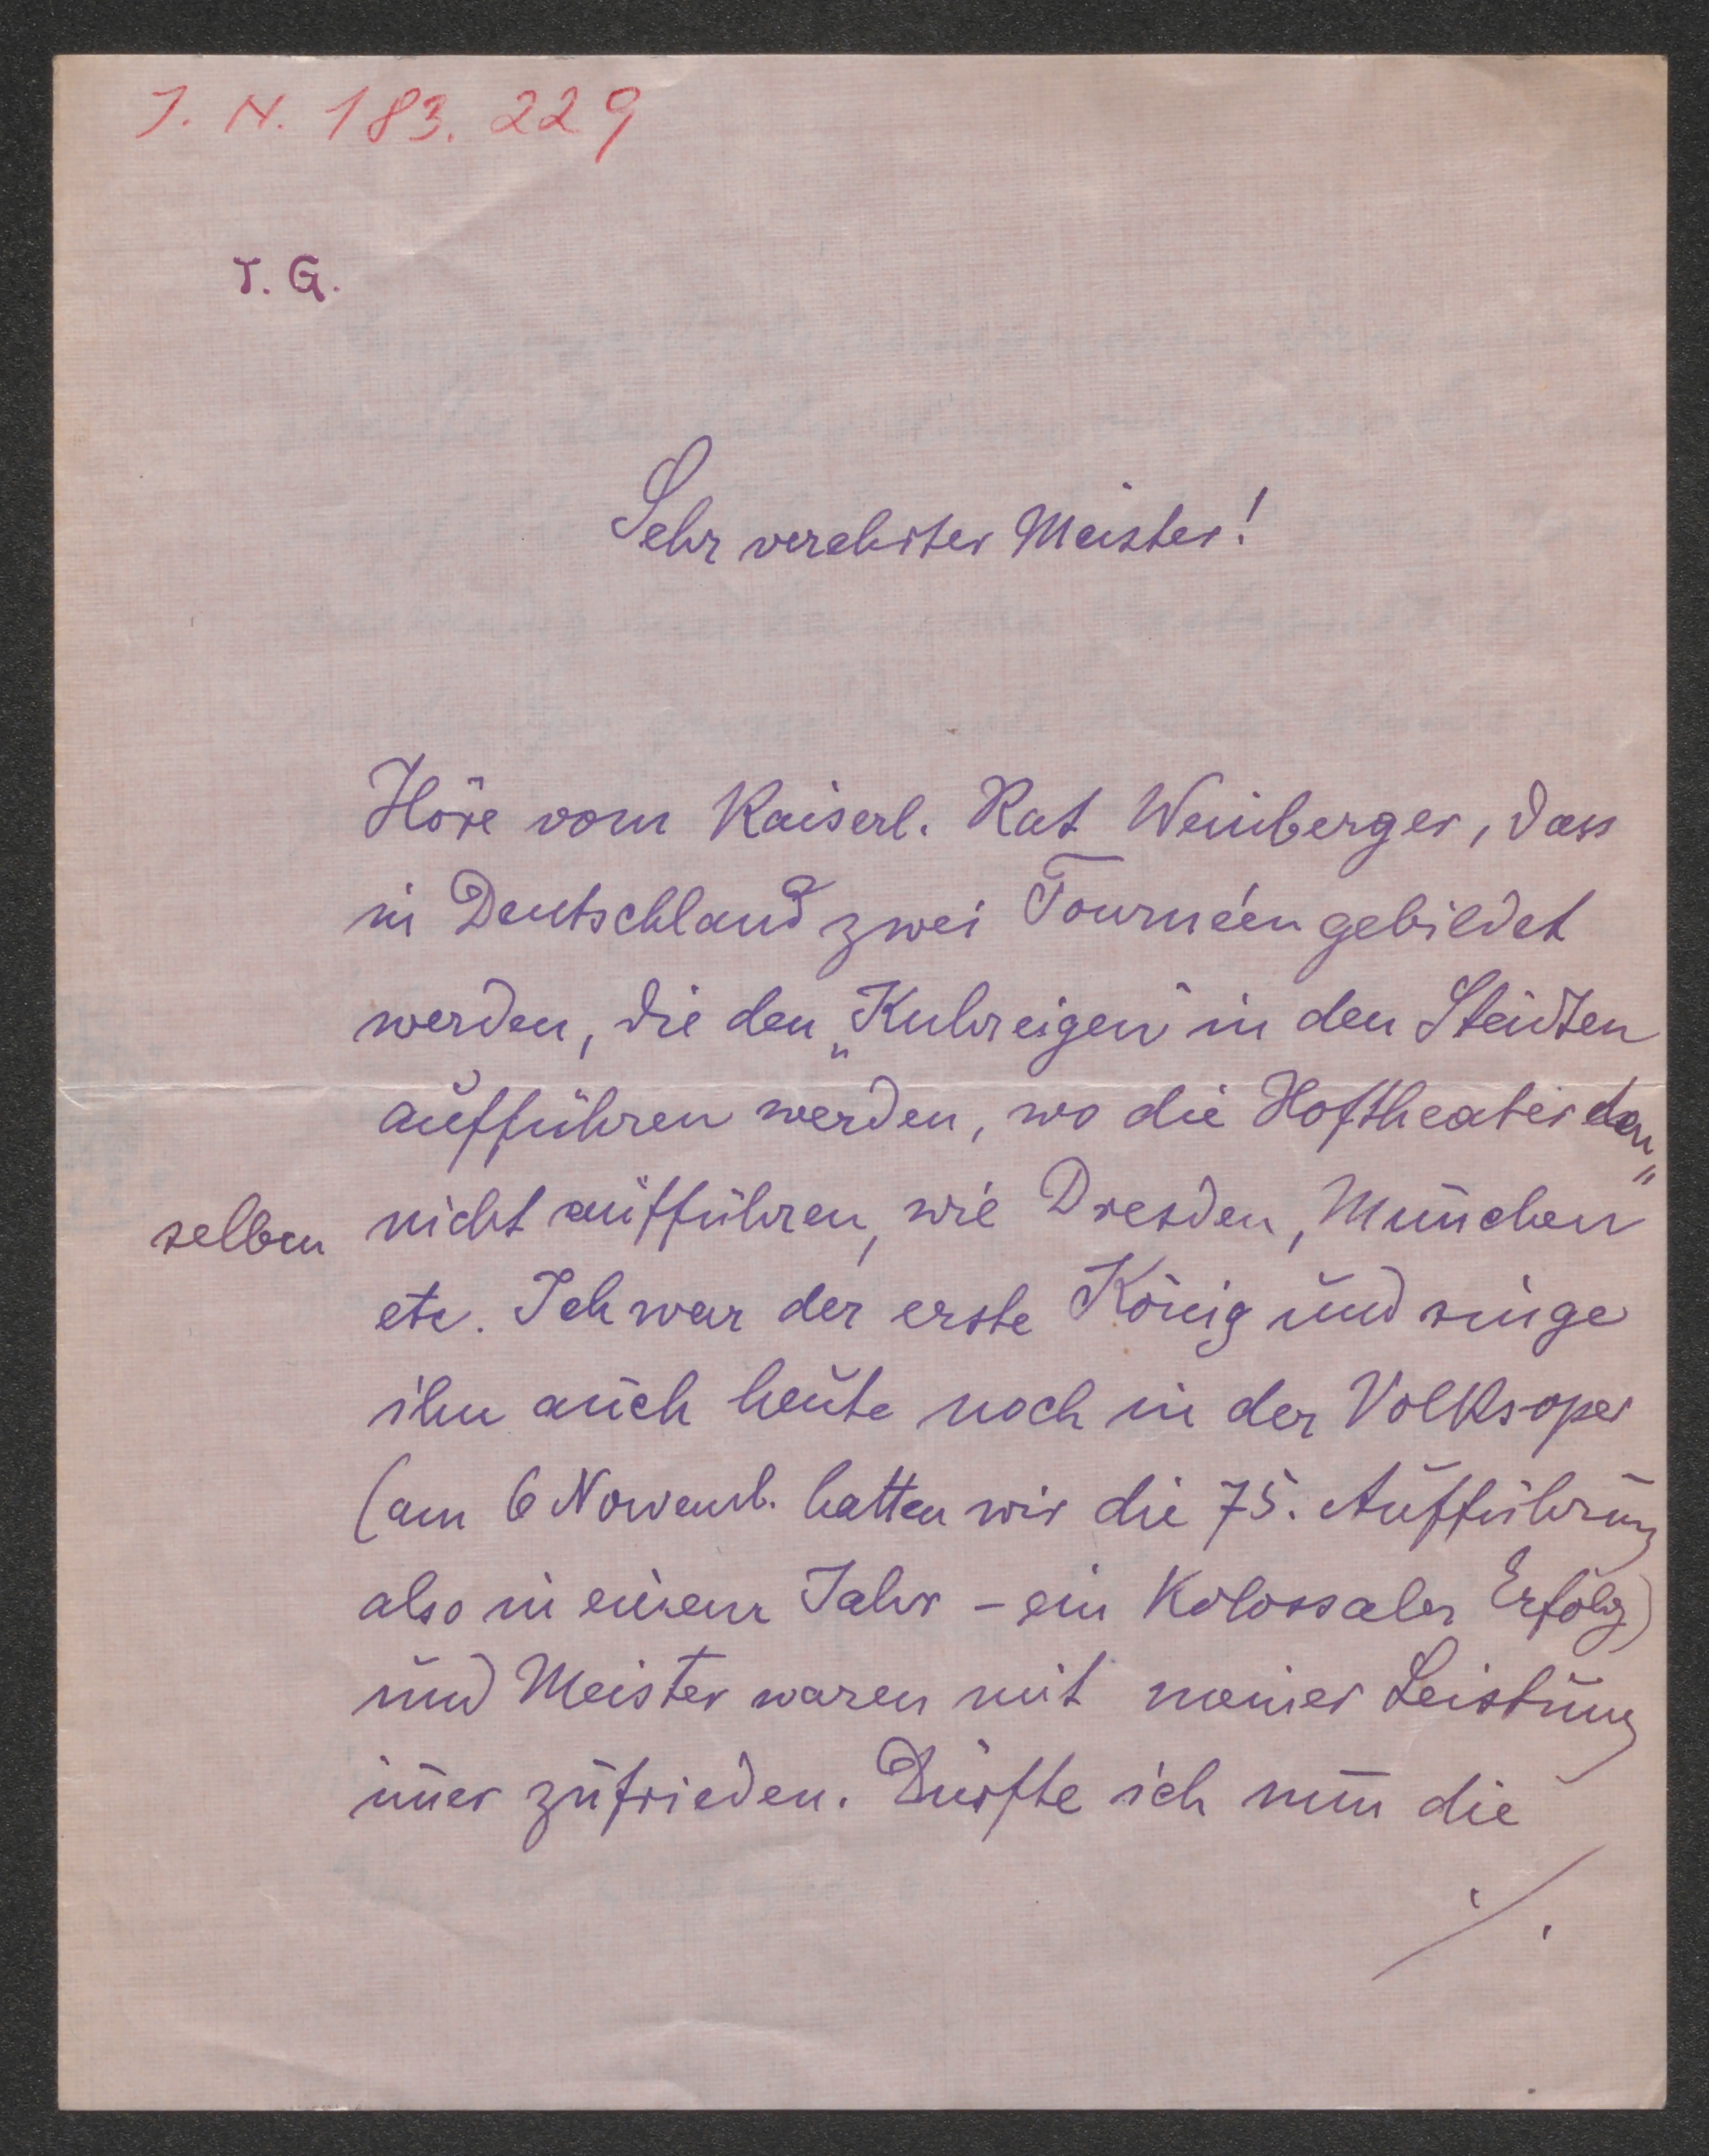 J. N. 183. 229
T. G.
Sehr verehrter Meister!
Höre vom Kaiserl. Rat Weinberger, dass
in Deutschland zwei Tournéen gebildet
werden, die den „Kuhreigen“ in den Städten
aufführen werden, wo die Hoftheater den„
selben nicht aufführen, wie Dresden, München
etc. Ich war der erste König und singe
ihn auch heute noch in der Volksoper
(am 6 Novemb. hatten wir die 75. Aufführung
also in einem Jahr – ein Kolossaler Erfolg)
und Meister waren mit meiner Leistung
im̄er zufrieden. Dürfte ich nun die
./.